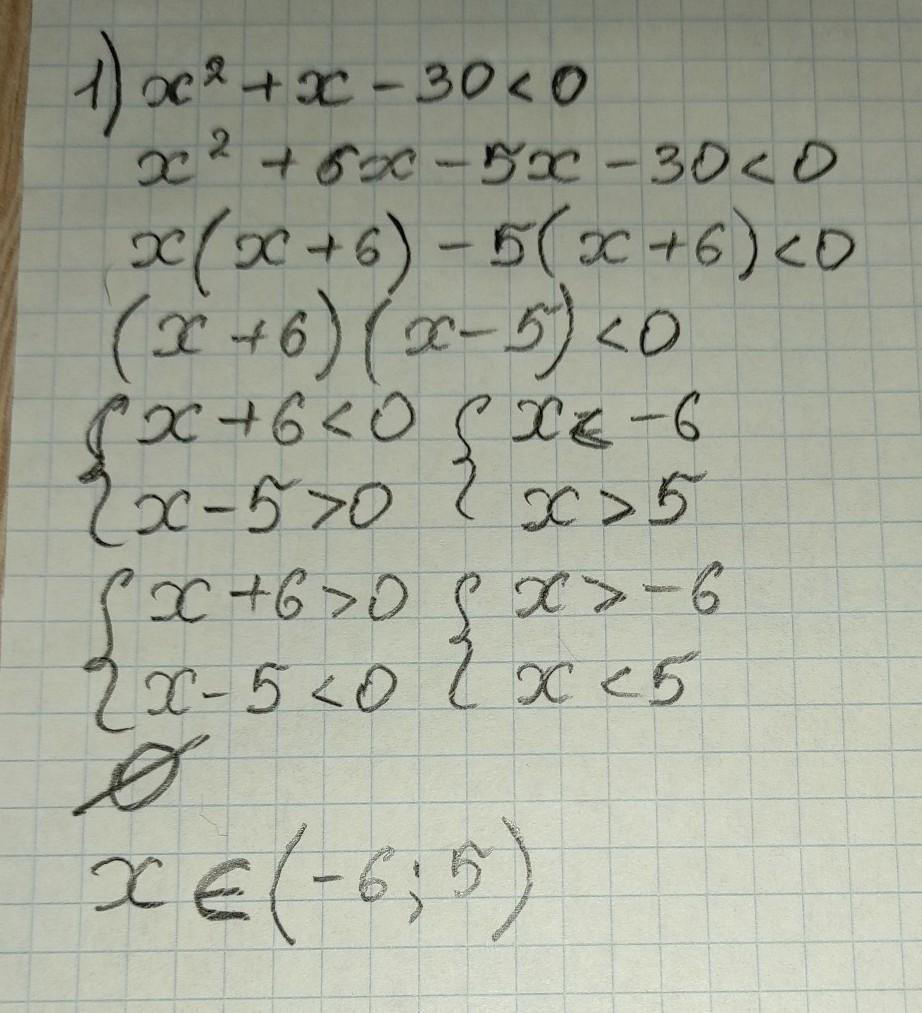 1) x² + x - 30 < 0
x² + 6x - 5x - 30 < 0
x(x + 6) - 5(x + 6) < 0
(x + 6)(x - 5) < 0
{ x + 6 < 0 { x < -6
{ x - 5 > 0 { x > 5
{ x + 6 > 0 { x > -6
{ x - 5 < 0 { x < 5
∅
x ∈ (-6; 5)